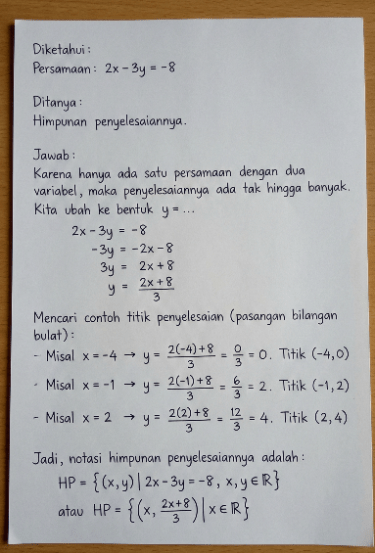 Diketahui :
Persamaan : 2x - 3y = -8
Ditanya :
Himpunan penyelesaiannya.
Jawab :
Karena hanya ada satu persamaan dengan dua
variabel, maka penyelesaiannya ada tak hingga banyak.
Kita ubah ke bentuk y = ...
2x - 3y = -8
-3y = -2x - 8
3y = 2x + 8
y = \frac{2x+8}{3}
Mencari contoh titik penyelesaian (pasangan bilangan
bulat) :
- Misal x = -4 → y = \frac{2(-4)+8}{3} = \frac{0}{3} = 0. Titik (-4,0)
- Misal x = -1 → y = \frac{2(-1)+8}{3} = \frac{6}{3} = 2. Titik (-1,2)
- Misal x = 2 → y = \frac{2(2)+8}{3} = \frac{12}{3} = 4. Titik (2,4)
Jadi, notasi himpunan penyelesaiannya adalah :
HP = {(x,y) | 2x - 3y = -8, x,y ∈ ℝ}
atau HP = {(x, \frac{2x+8}{3}) | x ∈ ℝ}